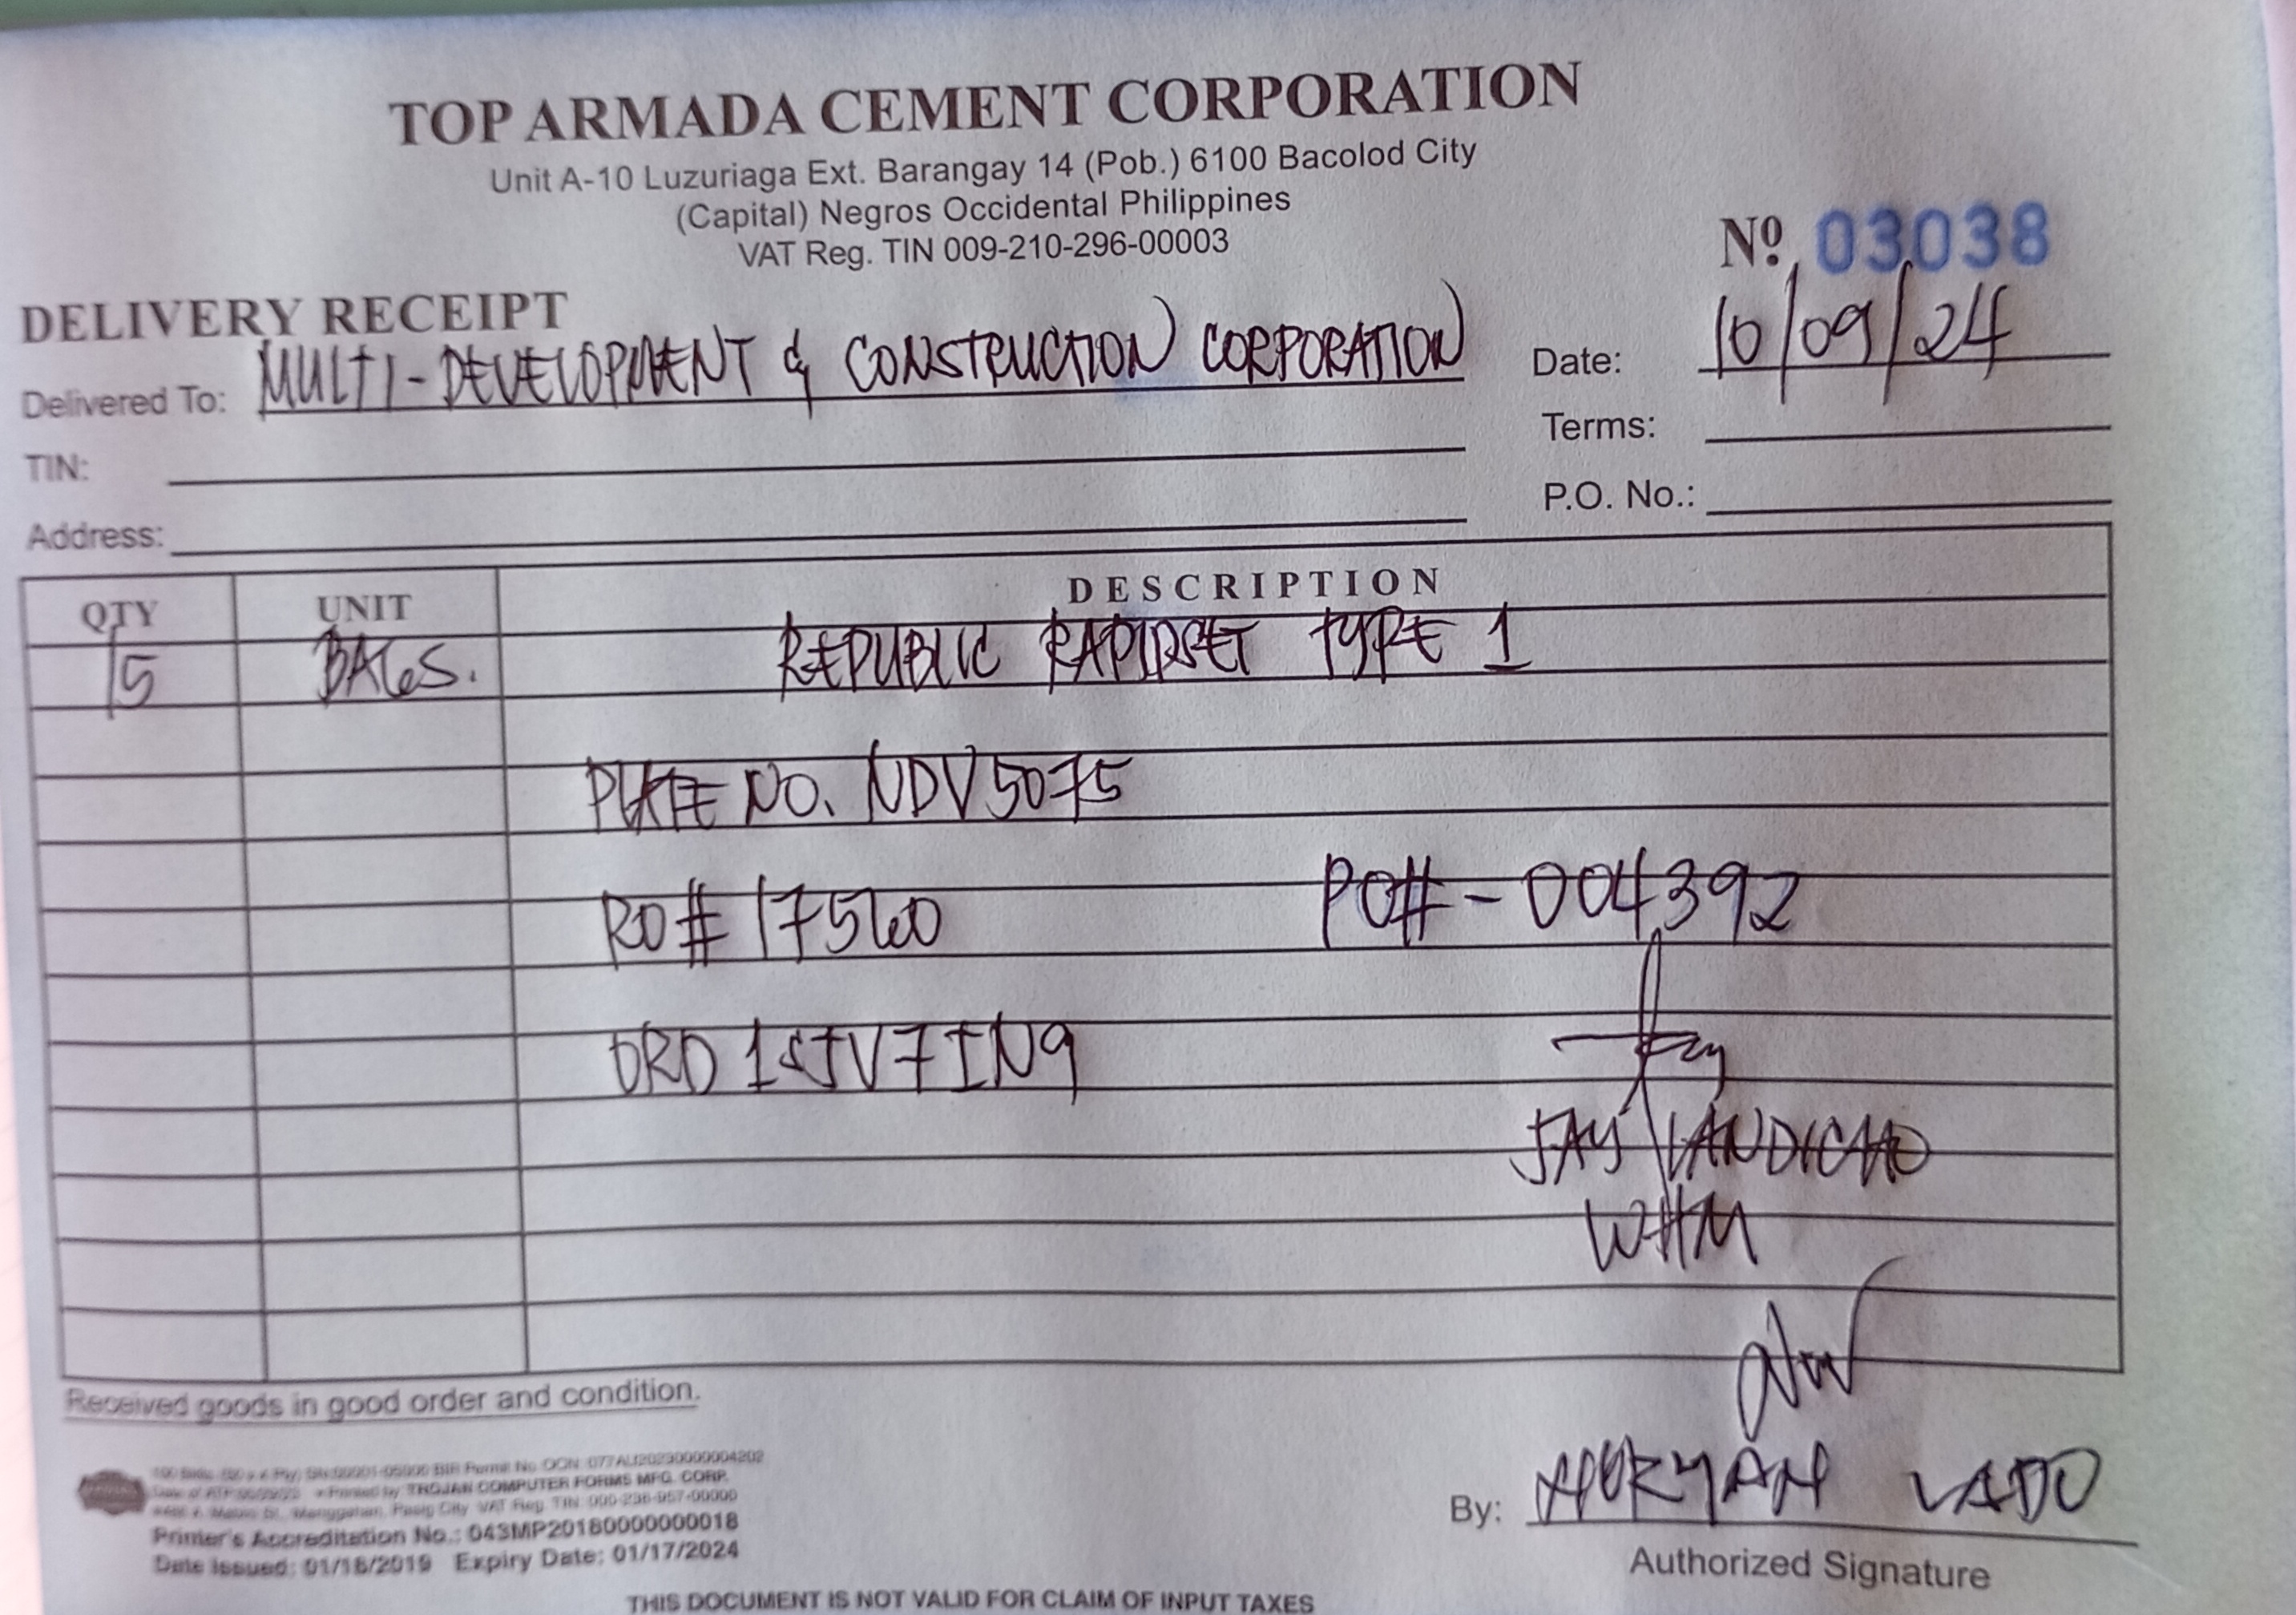 TOP ARMADA CEMENT CORPORATION
Unit A-10 Luzuriaga Ext. Barangay 14 (Pob.) 6100 Bacolod City
(Capital) Negros Occidental Philippines
VAT Reg. TIN 009-210-296-00003
Nº 03038
DELIVERY RECEIPT
Delivered To: MULTI-DEVELOPMENT & CONSTRUCTION CORPORATION
Date: 10/09/24
TIN:
Terms:
Address:
P.O. No.:
QTY UNIT DESCRIPTION
15 BAGS. REPUBLIC RAPIDSET TYPE 1
PLATE NO. NDV5075
RO# 17560 PO#-004392
ORD 1SJV7IN9
JAY LANDICHO
WHM
Received goods in good order and condition.
TROJAN COMPUTER FORMS MFG. CORP.
Printer's Accreditation No.: 043MP20180000000018
Date Issued: 01/18/2019 Expiry Date: 01/17/2024
By: LADO
Authorized Signature
THIS DOCUMENT IS NOT VALID FOR CLAIM OF INPUT TAXES